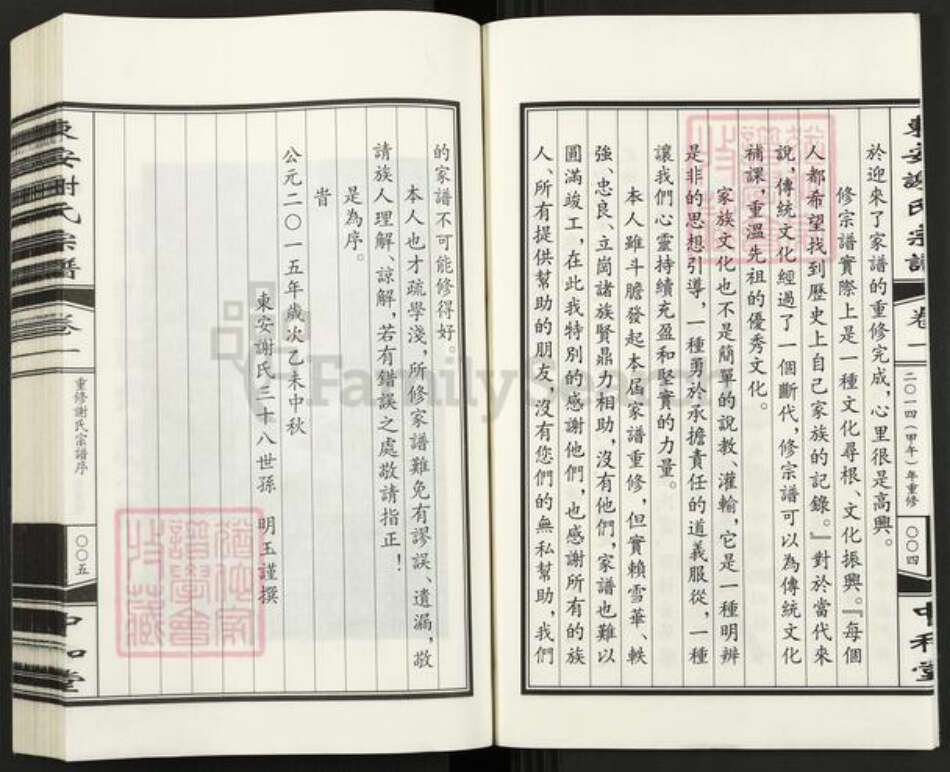 東安謝氏宗譜
卷一
二〇一四(甲午)年重修
〇〇四
中和堂
於迎來了家譜的重修完成,心里很是高興。
修宗譜實際上是一種文化尋根、文化振興。『每個
人都希望找到歷史上自己家族的記錄。』對於當代來
說,傳統文化經過了一個斷代,修宗譜可以為傳統文化
補課,重溫先祖的優秀文化。
家族文化也不是簡單的說教、灌輸,它是一種明辨
是非的思想引導,一種勇於承擔責任的道義服從,一種
讓我們心靈持續充盈和堅實的力量。
本人雖斗膽發起本届家譜重修,但實賴雪華、軼
強、忠良、立崗諸族賢鼎力相助,沒有他們,家譜也難以
圓滿竣工,在此我特別的感謝他們,也感謝所有的族
人、所有提供幫助的朋友,沒有您們的無私幫助,我們
的家譜不可能修得好。
本人也才疏學淺,所修家譜難免有謬誤、遺漏,敬
請族人理解、諒解,若有錯誤之處敬請指正!
是為序。
旹
公元二〇一五年歲次乙未中秋
東安謝氏三十八世孫 明玉謹撰
東安謝氏宗譜
卷一
重修謝氏宗譜序
〇〇五
中和堂
FamilySearch